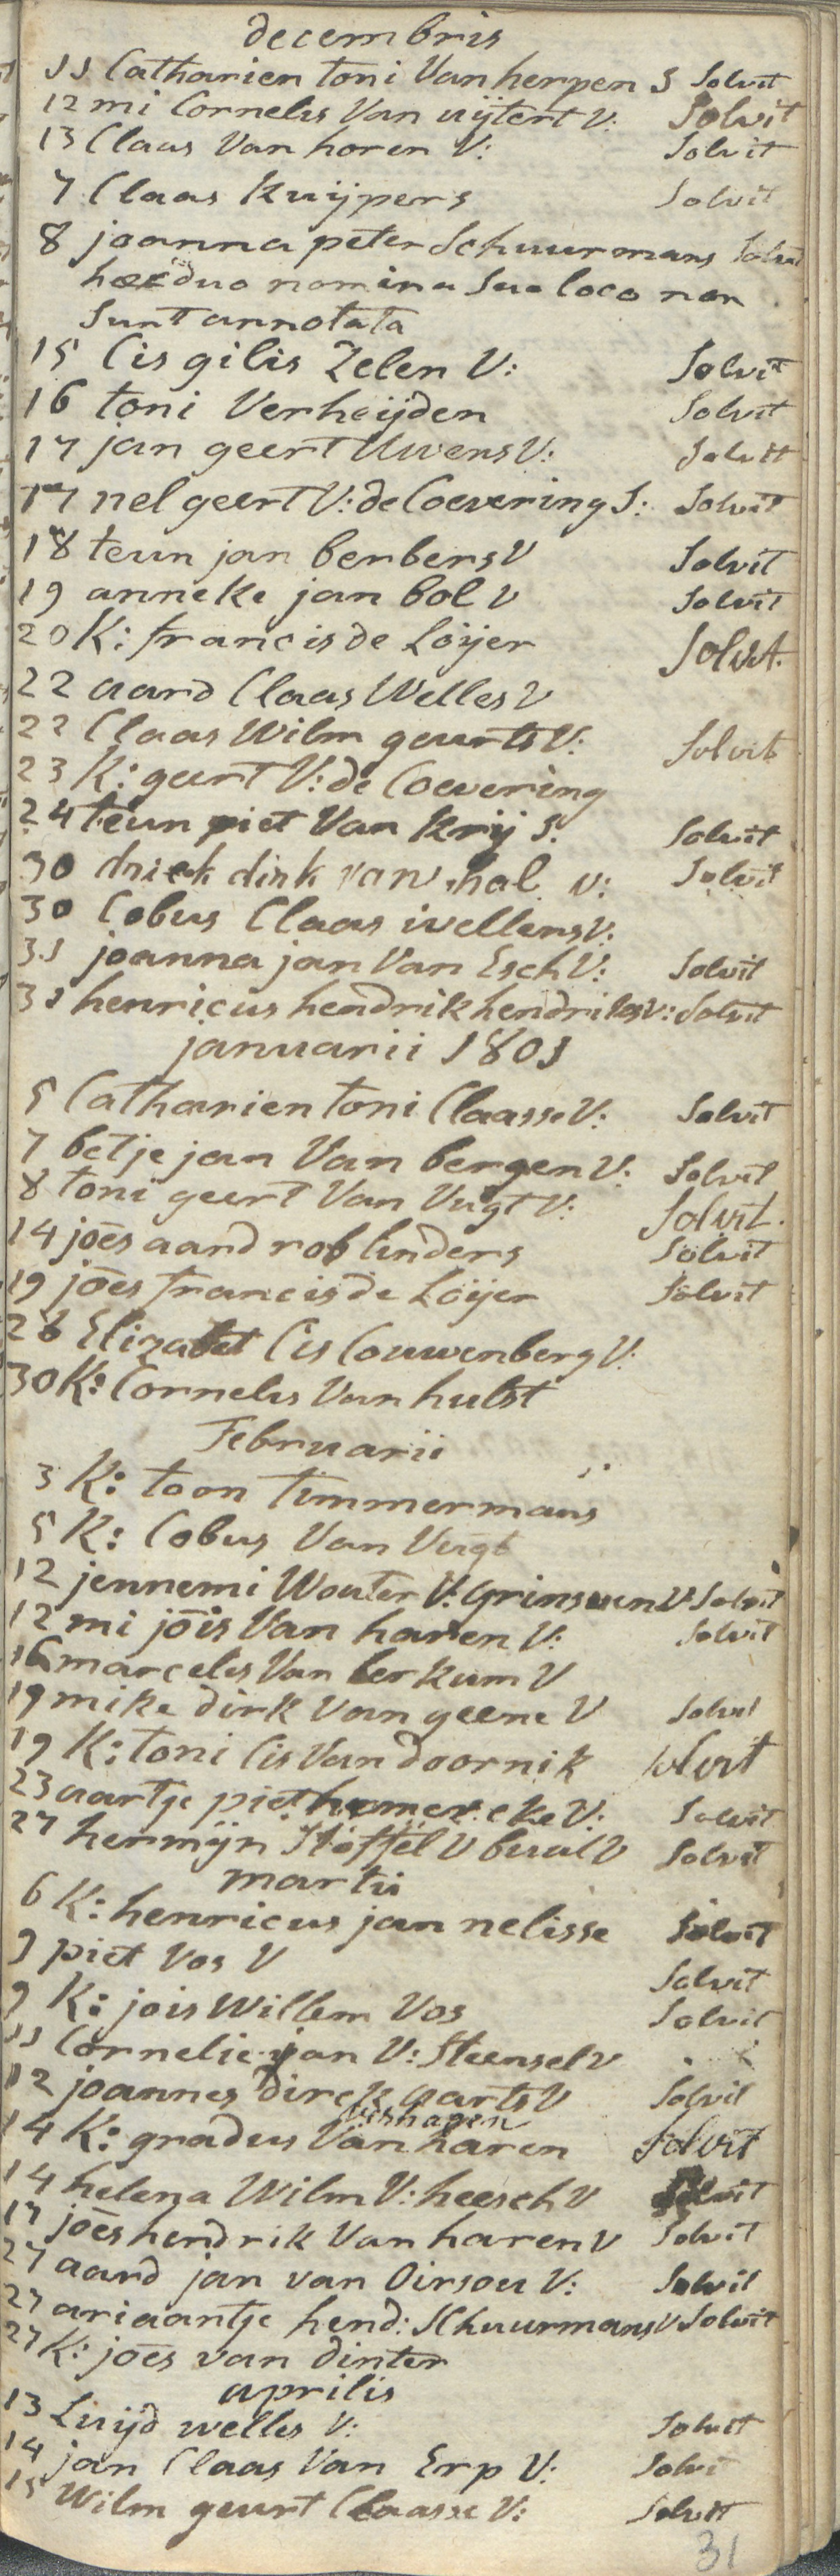 decembris
11 Catharien toni Van herpen S Solvit
12 mi Cornelis Van uijtert V: Solvit
13 Claas Van horen V: Solvit
7 Claas Kuijpers Solvit
8 joanna peter Schuurmans Solvit
hæc duo nomina suo loco non
sunt annotata
15 Cis gilis Zelen V: Solvit
16 toni Verheijden Solvit
17 jan geert Uwens V: Solvit
17 nel geert V: de Coevering S: Solvit
18 teun jan berbers V Solvit
19 anneke jan bol V Solvit
20 K: francis de Löijer Solvit.
22 aard Claas Welles V
22 Claas Wilm geurts V: Solvit
23 K: geert V: de Coevering
24 teun piet Van Krij S: Solvit
30 driek dirk van hal v: Solvit
30 Cobus Claas wellens V:
31 joanna jan Van Esch V: Solvit
31 henricus hendrik hendriks V: Solvit
januarii 1801
5 Catharien toni Claasse V: Solvit
7 betje jan Van bergen V: Solvit
8 toni geert Van Vugt V: Solvit.
14 jōes aard rob linders Solvit
19 jōes francis de Löijer Solvit
26 Elizabet Cis Couwenberg V:
30 K: Cornelis Van hulst
Februarii
3 K: toon Timmermans
5 K: Cobus Van Vugt
12 jennemi Wouter V: Grinsuen V Solvit
12 mi jōis Van haren V: Solvit
16 marcelis Van berkum V
19 mike dirk Van geene V Solvit
19 K: toni Cis Van doornik Solvit
23 aartje piet V: Solvit
27 hermijn Stoffel V buul V Solvit
martii
6 K: henricus jan nelisse Solvit
9 piet Vos V Solvit
9 K: jois Willem Vos Solvit
11 Cornelie jan V: Steensel V
12 joannes direk aarts V Solvit
Vershagen
14 K: gradus Van haren Solvit
14 helena Wilm V: heesch V Solvit
17 jōes hendrik Van haren V Solvit
27 aard jan van Oirsou V: Solvit
27 ariaantje hend: Schuurmans V Solvit
27 K: jōes van dinter
aprilis
13 Luijd welles V: Solvit
14 jan Claas Van Erp V: Solvit
15 Wilm geurt Claasse V: Solvit
31